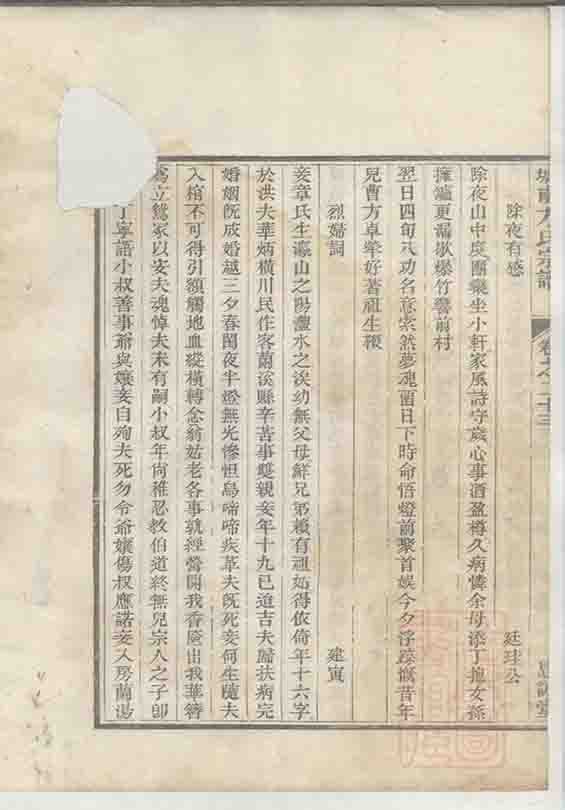 城南方氏宗譜 卷之二十三
除夜有感 廷珪公
除夜山中度團欒坐小軒家風詩守歲心事酒盈樽久病憐余母添丁抱女孫
擁爐更漏歇爆竹響前村
翌日四旬又功名意索然夢魂留日下時命悟燈前聚首娛今夕浮蹤慨昔年
兒曹方卓犖好著祖生鞭
烈婦詞 建寅
妾章氏生瀛山之陽灃水之涘幼無父母鮮兄弟賴有祖妣得依倚年十六字
於洪夫華炳橫川民作客蘭溪縣辛苦事雙親妾年十九已迨吉夫歸扶病完
婚姻既成婚越三夕春閨夜半燈無光慘怛烏啼啼疾革夫既死妾何生隨夫
入棺不可得引額觸地血縱橫轉念翁姑老各事孰經營開我香奩出我華簪
爲立鴛冢以安夫魂悼夫未有嗣小叔年尚稚忍教伯道終無兒宗人之子卽
丁寧語小叔善事爺與孃妾自殉夫死勿令爺孃傷叔應諾妾入房蘭湯